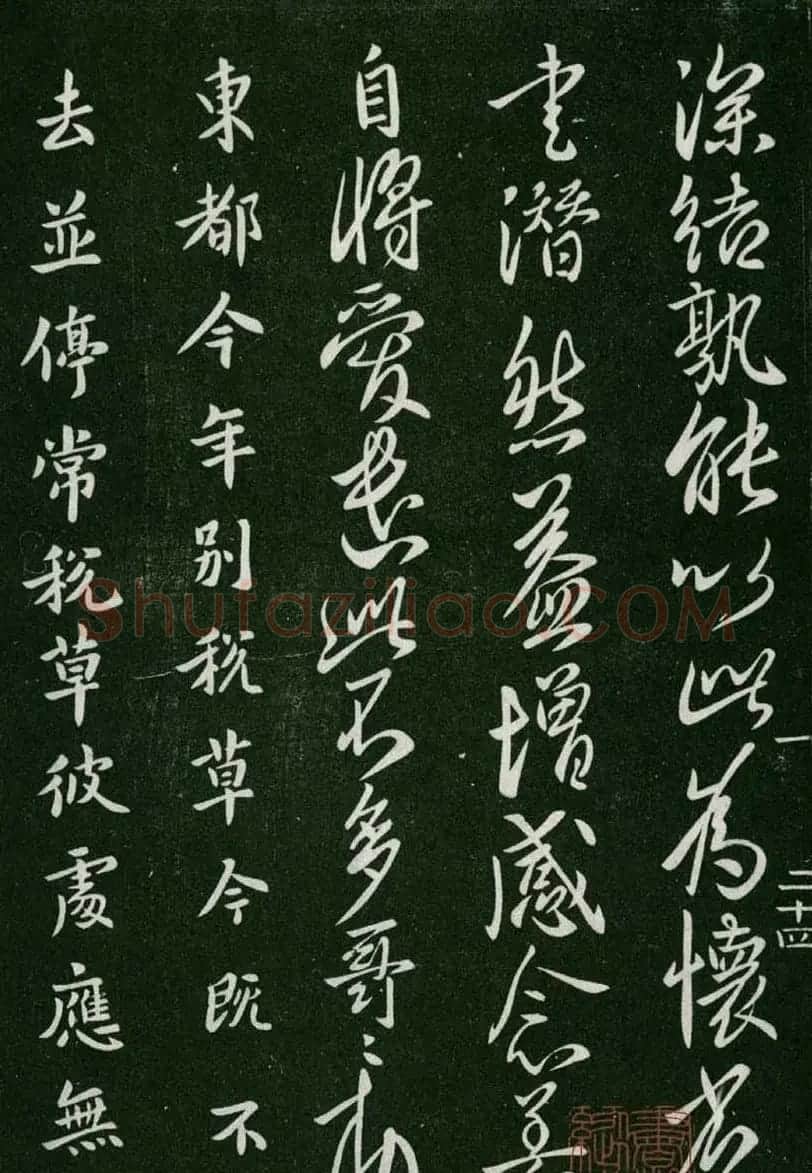 深結孰能以此為懷
書潛然益增感念善
自將愛遣此不多哥〻
東都今年別稅草今既不
去並停常稅草彼處應無
一
二十四
Shufaziliao.COM